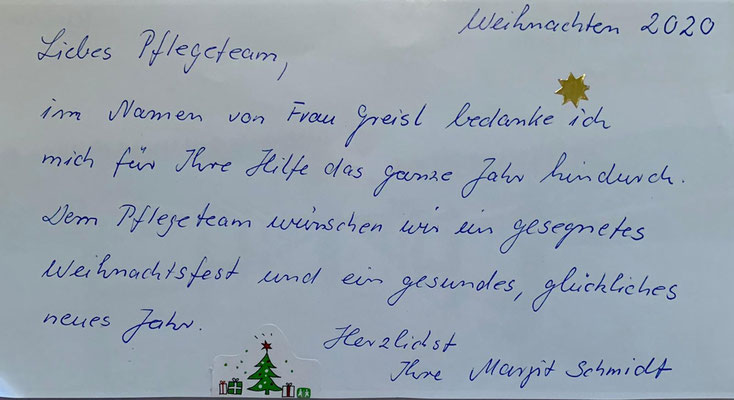 Weihnachten 2020
Liebes Pflegeteam,
im Namen von Frau Greisl bedanke ich
mich für Ihre Hilfe das ganze Jahr hindurch.
Dem Pflegeteam wünschen wir ein gesegnetes
Weihnachtsfest und ein gesundes, glückliches
neues Jahr.
Herzlichst
Ihre Margit Schmidt